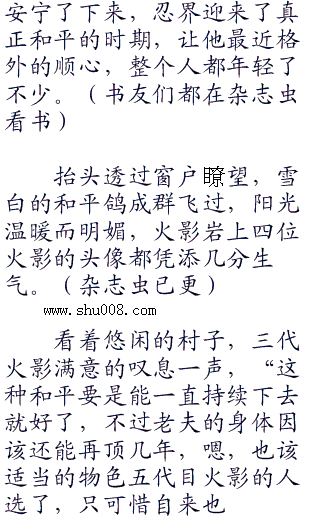 安宁了下来，忍界迎来了真
正和平的时期，让他最近格
外的顺心，整个人都年轻了
不少。（书友们都在杂志虫
看书）
抬头透过窗户瞭望，雪
白的和平鸽成群飞过，阳光
温暖而明媚，火影岩上四位
火影的头像都凭添几分生
气。（杂志虫已更）
www.shu008.com
看着悠闲的村子，三代
火影满意的叹息一声，“这
种和平要是能一直持续下去
就好了，不过老夫的身体因
该还能再顶几年，嗯，也该
适当的物色五代目火影的人
选了，只可惜自来也